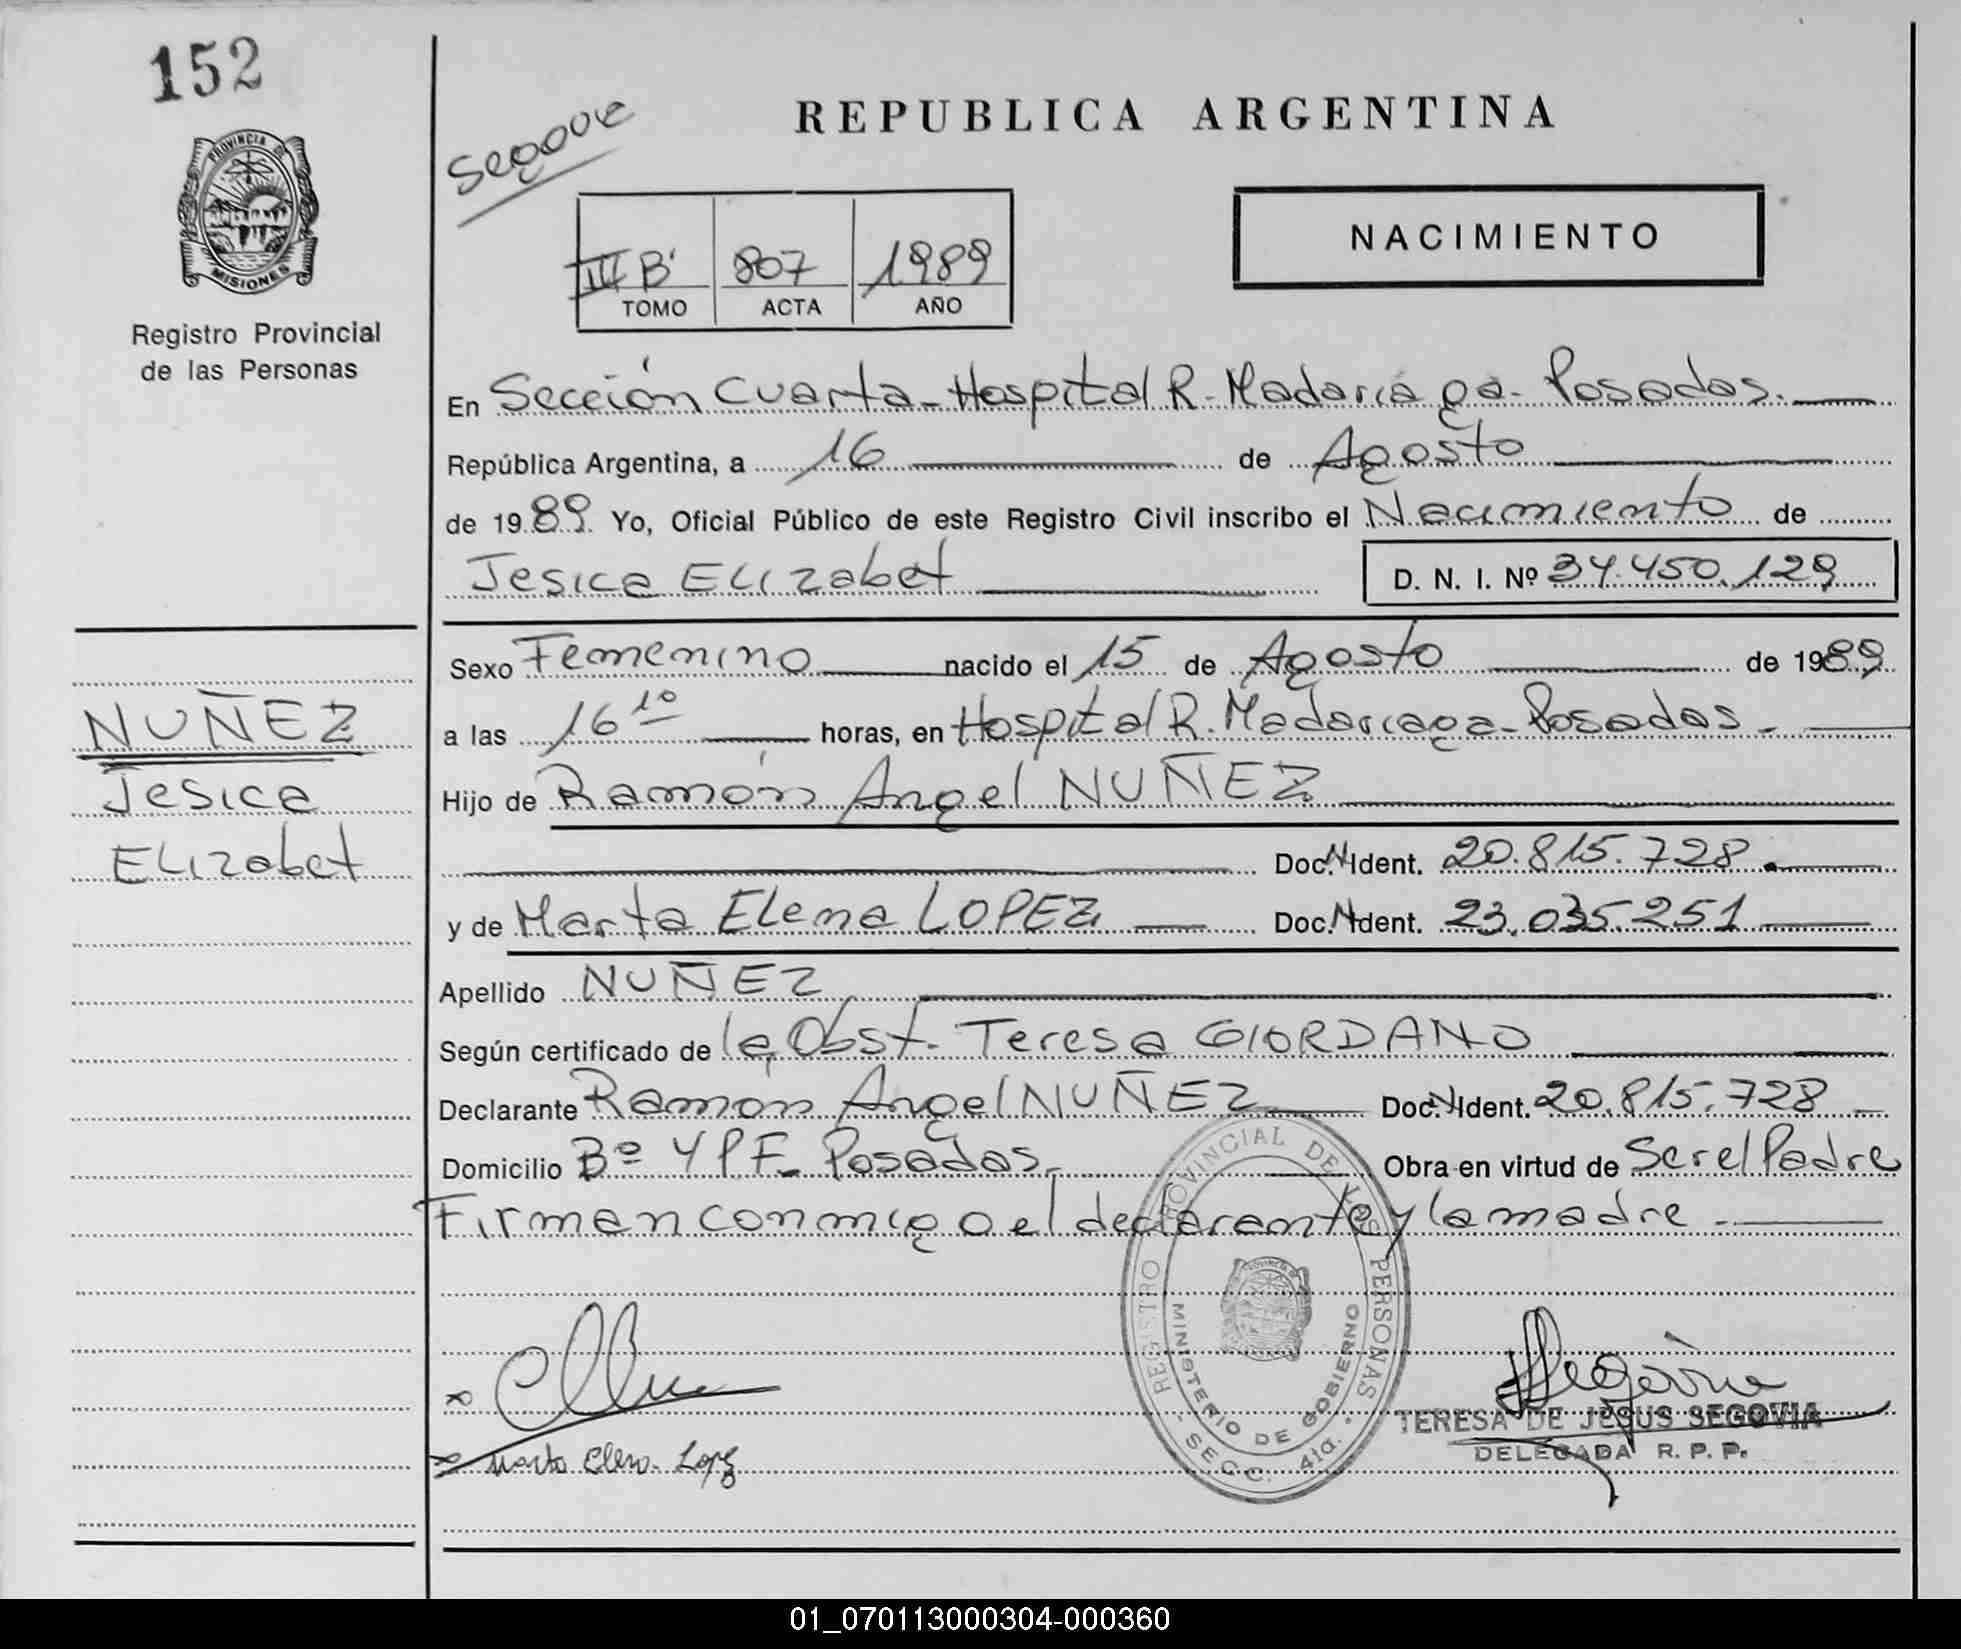 152
PROVINCIA DE
MISIONES
Registro Provincial
de las Personas
REPUBLICA ARGENTINA
NACIMIENTO
III B 807 1989
TOMO ACTA AÑO
En Sección Cuarta - Hospital R. Madariaga - Posadas.
República Argentina, a 16 de Agosto
de 1989. Yo, Oficial Público de este Registro Civil inscribo el Nacimiento de
Jesica Elizabet D. N. I. Nº 34.450.129
Sexo Femenino nacido el 15 de Agosto de 1989
a las 16 10 horas, en Hospital R. Madariaga - Posadas -
Hijo de Ramón Angel NUÑEZ
Doc. N. Ident. 20.815.728.
y de Marta Elena LOPEZ Doc. N. Ident. 23.035.251
Apellido NUÑEZ
Según certificado de la Obst. Teresa GIORDANO
Declarante Ramón Angel NUÑEZ Doc. N. Ident. 20.815.728
Domicilio Bº YPF - Posadas. Obra en virtud de Ser el Padre
Firman conmigo el declarante y la madre.
NUÑEZ
Jesica
Elizabet
REGISTRO PROVINCIAL DE LAS PERSONAS
MINISTERIO DE GOBIERNO
- SECC. 4ta. -
Marta Elena Lopez
Segovia
TERESA DE JESUS SEGOVIA
DELEGADA R. P. P.
01_070113000304-000360